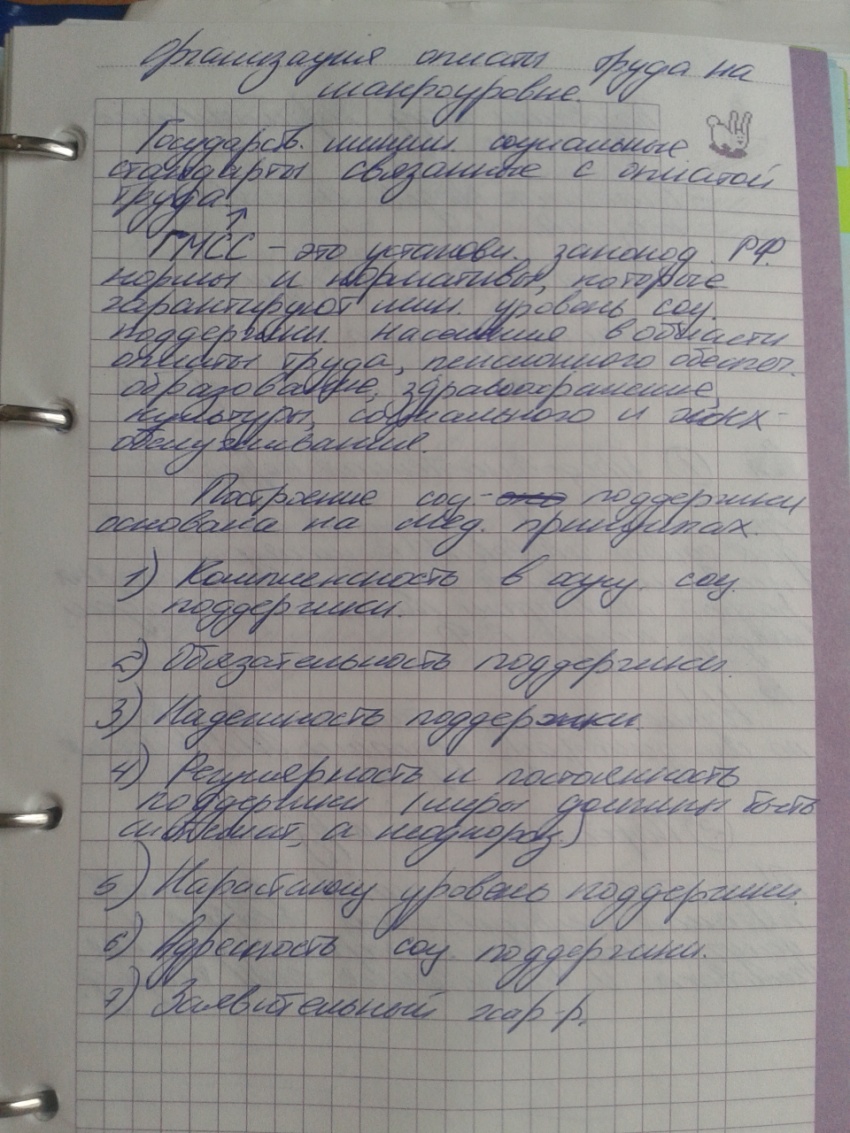 Организация оплаты труда на
макроуровне.
Государств. миним. социальные
стандарты связанные с оплатой
труда
↑
ГМСС – это установл. законод. РФ.
нормы и нормативы, которые
гарантируют мин. уровень соц.
поддержки населения в области
оплаты труда, пенсионного обеспеч.
образование, здравоохранение,
культуры, социального и ЖКХ-
обслуживания.
Построение соц- поддержки
основана на след. принципах.
1) Комплексность в осущ. соц.
поддержки.
2) Обязательность поддержки.
3) Надежность поддержки
4) Регулярность и постоянность
поддержки (меры должны быть
системат, а неоднораз.)
5) уровень поддержки.
6) Адресность соц поддержки.
7) Заявительный хар-р.